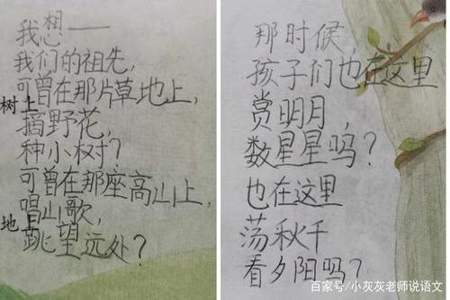 我想——
我们的祖先,
可曾在那片草地上,
树上
摘野花,
种小树?
可曾在那座高山上,
唱山歌,
地
跳望远处?
那时候,
孩子们也在这里
赏明月,
数星星吗?
也在这里
荡秋千
看夕阳吗?
百家号/小灰灰老师说语文